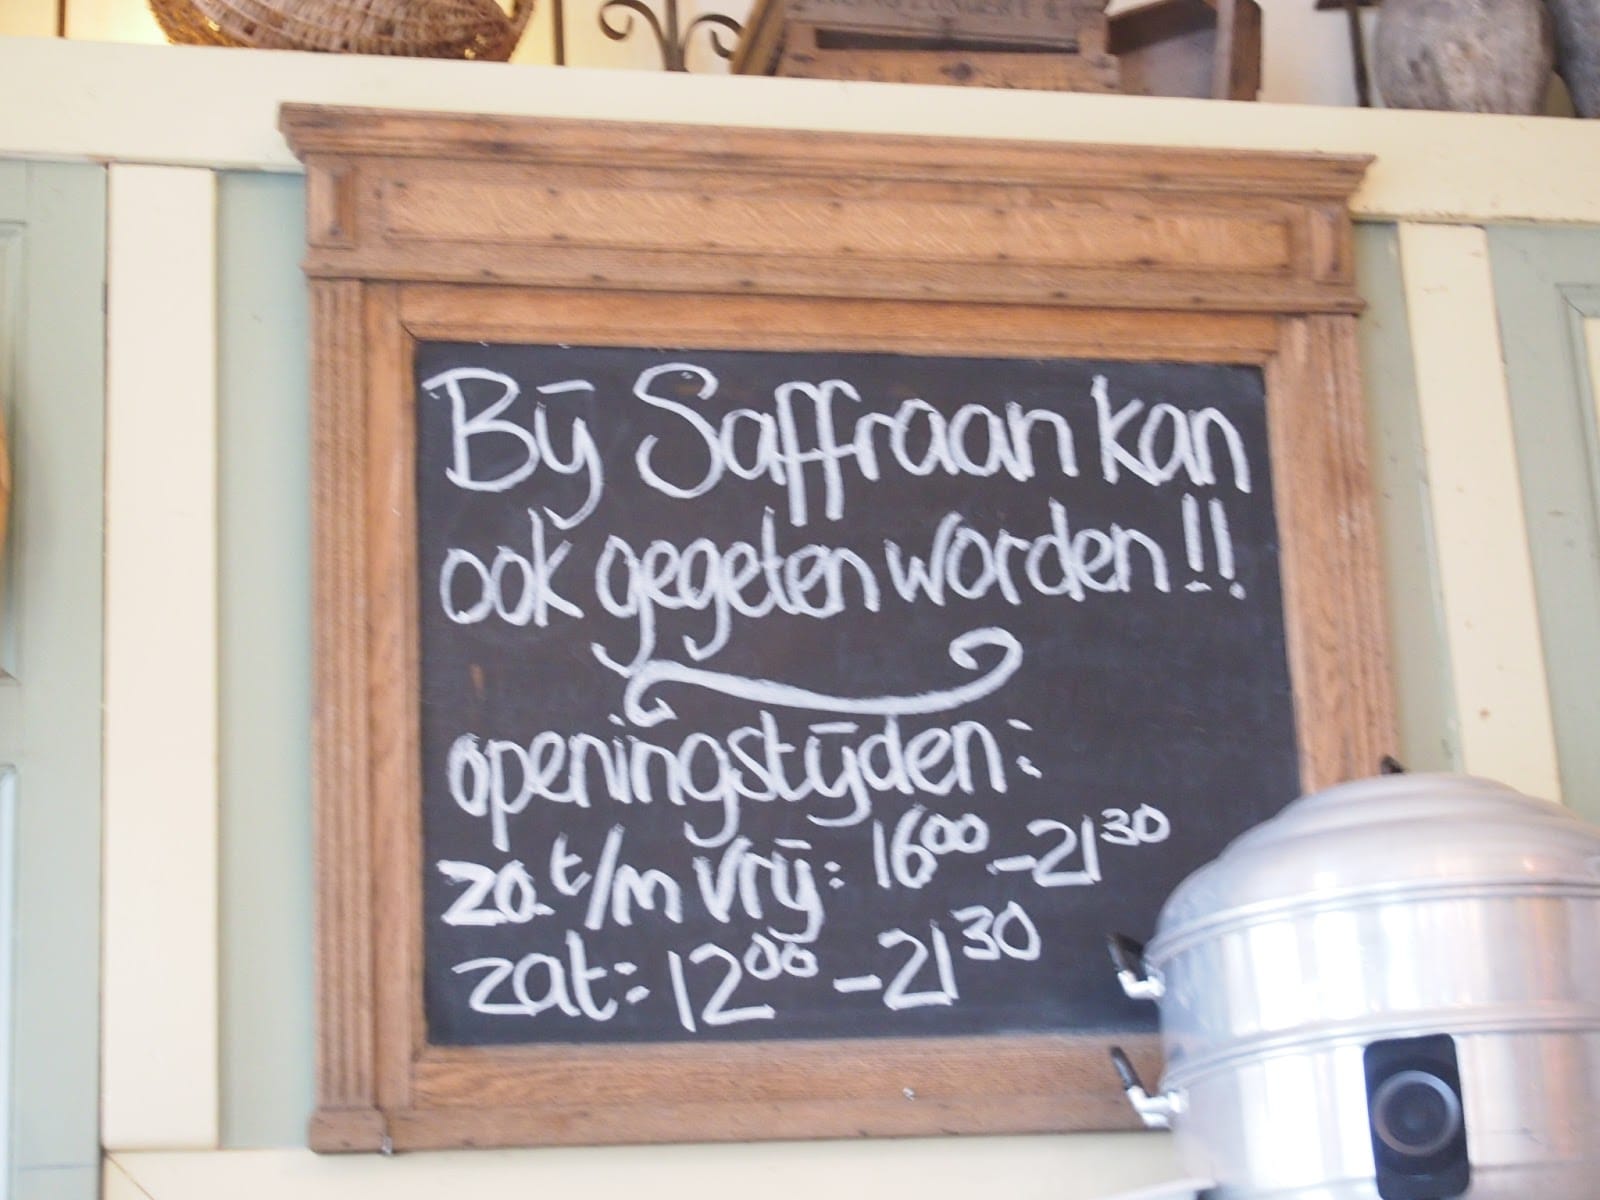 Bij Saffraan kan
ook gegeten worden!!
openingstijden:
zo t/m vrij: 16⁰⁰-21³⁰
zat: 12⁰⁰-21³⁰